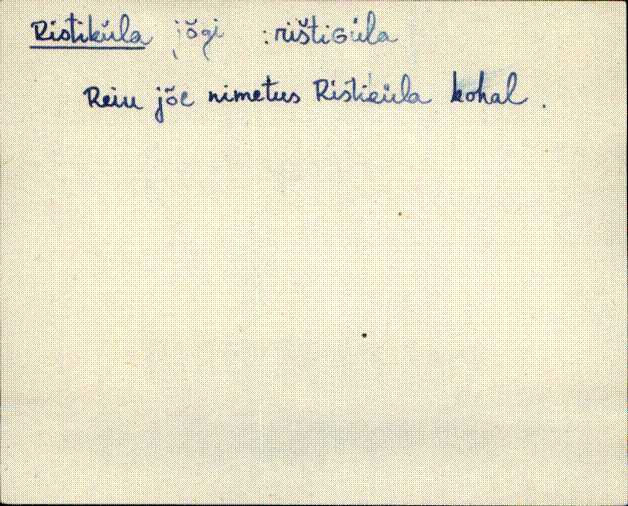 Ristiküla jõgi : rištiGüla
Reiu jõe nimetus Ristiküla kohal .